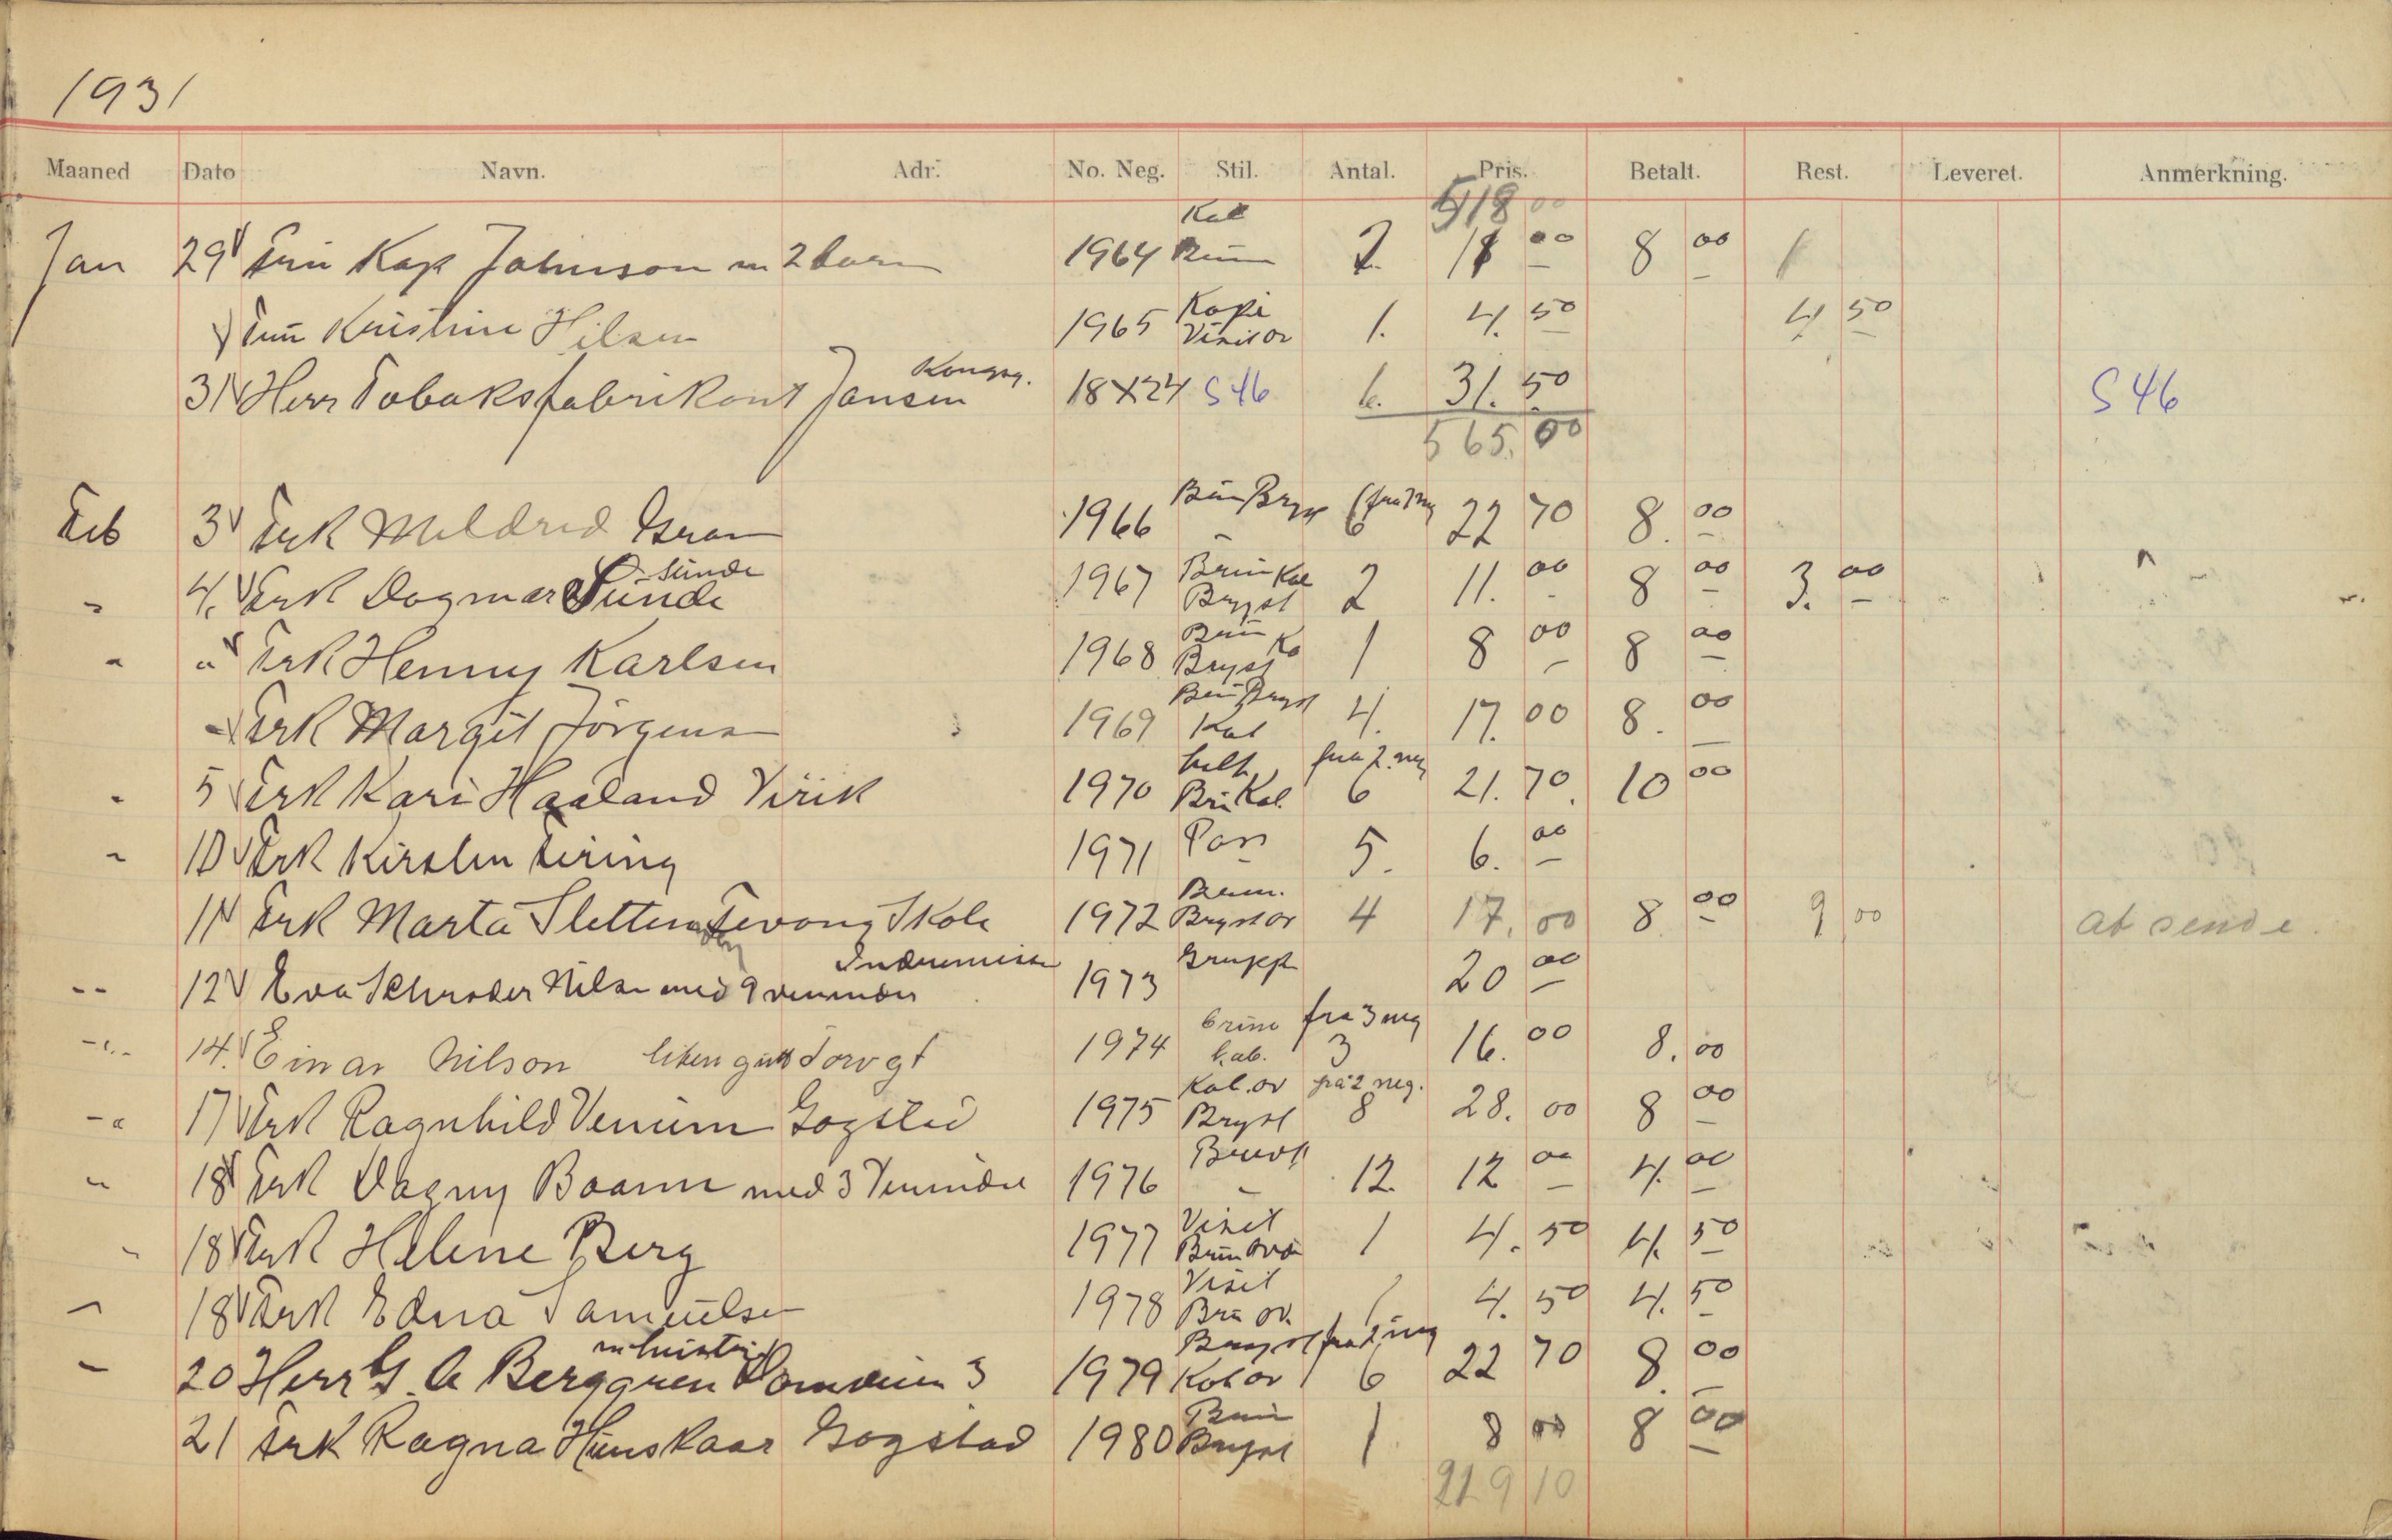 1931
Maaned Dato Navn. Adr. No. Neg. Stil. Antal. Pris. Betalt. Rest. Leveret. Anmerkning.
518 00
Jan 29 Fru Kap Johnson m 2 barn 1964 Kab 2 00 8 00
Fru Kristine Hilsen 1965 Kopi Visit ov 1. 4. 50 4 50
31 Herr Tobaksfabrikant Jansen Kongsg. 18X24 S46 6. 31. 50 S46
565. 00
Feb 3 Frk Mildred Gran 1966 Brün Bryst 6 22 70 8. 00
4. Frk Dagmar Sünde Sünde 1967 Brün Kab Bryst 2 11. 00 8 00 3. 00
" " Frk Henny Karlsen 1968 Brün Ka Bryst 1 8 00 8 00
" Frk Margit Jörgens 1969 Brün Bryst Kab 4. 17. 00 8. 00
" 5 Frk Kari Haaland Virik 1970 helt Brü Kab. fra 2. neg 6 21. 70. 10 00
" 10 Frk Kirsten Feiring 1971 Pas 5. 6. 00
11 Frk Marta Sletten Fevang Skole 1972 Bryst ov 4 17. 00 8 00 9 00 at sende.
" 12 Eva Schrøder Nilsen med 9 veninder Indremision 1973 Grupp 20 00
" 14. Einar Nilson liten gutt Torvgt 1974 brün kab. fra 3 neg 3 16. 00 8. 00
" 17 Frk Ragnhild Gogstad 1975 Kab. ov Bryst fra 2 neg. 8 28. 00 8 00
" 18 Frk Dagny Baann med 3 Veninder 1976 12. 12 00 4. 00
" 18 Frk Helene Berg 1977 Visit 1 4. 50 4. 50
18 Frk Edna Samuelsen 1978 Visit Brü ov. 1 4. 50 4. 50
20 Herr G. A Berggren 3 1979 Bryst fra 2 neg Kab ov 6 22 70 8. 00
21 Frk Ragna Hünskaar Gogstad 1980 Brün Bryst 1 8 00 8 00
219 10